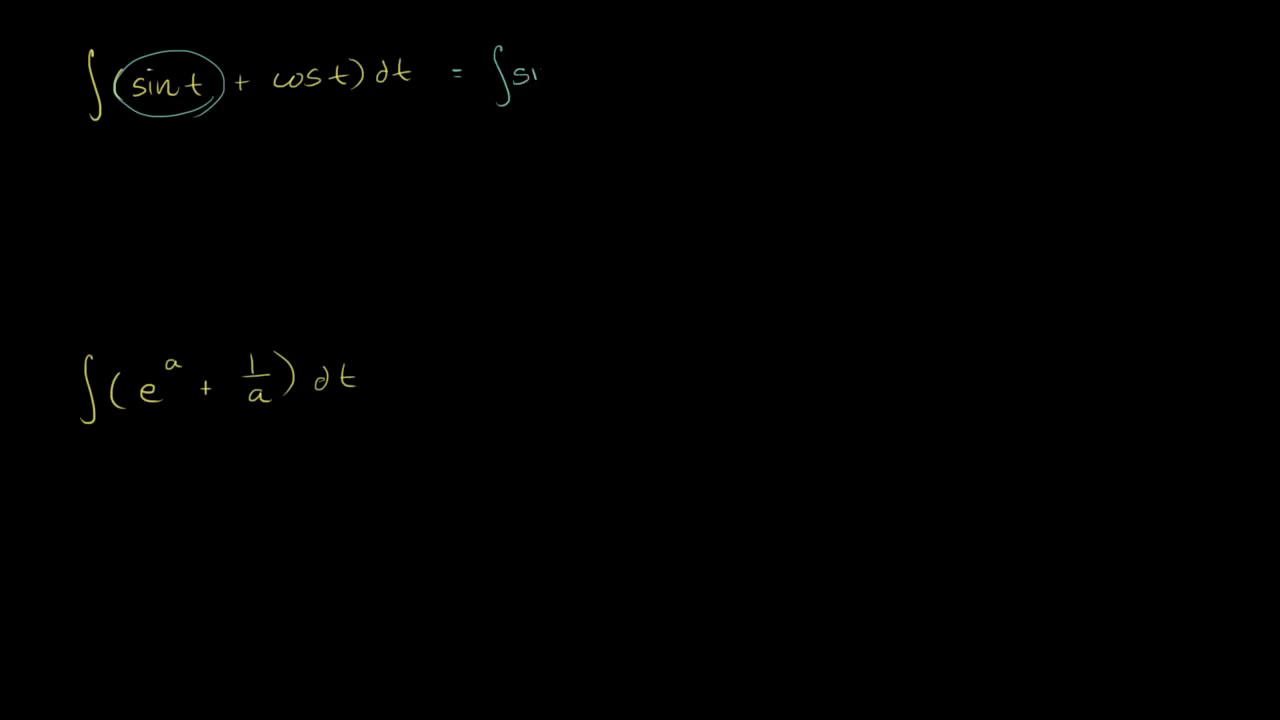 ∫(sin t + cos t) dt = ∫si
∫(e^a + 1/a) dt